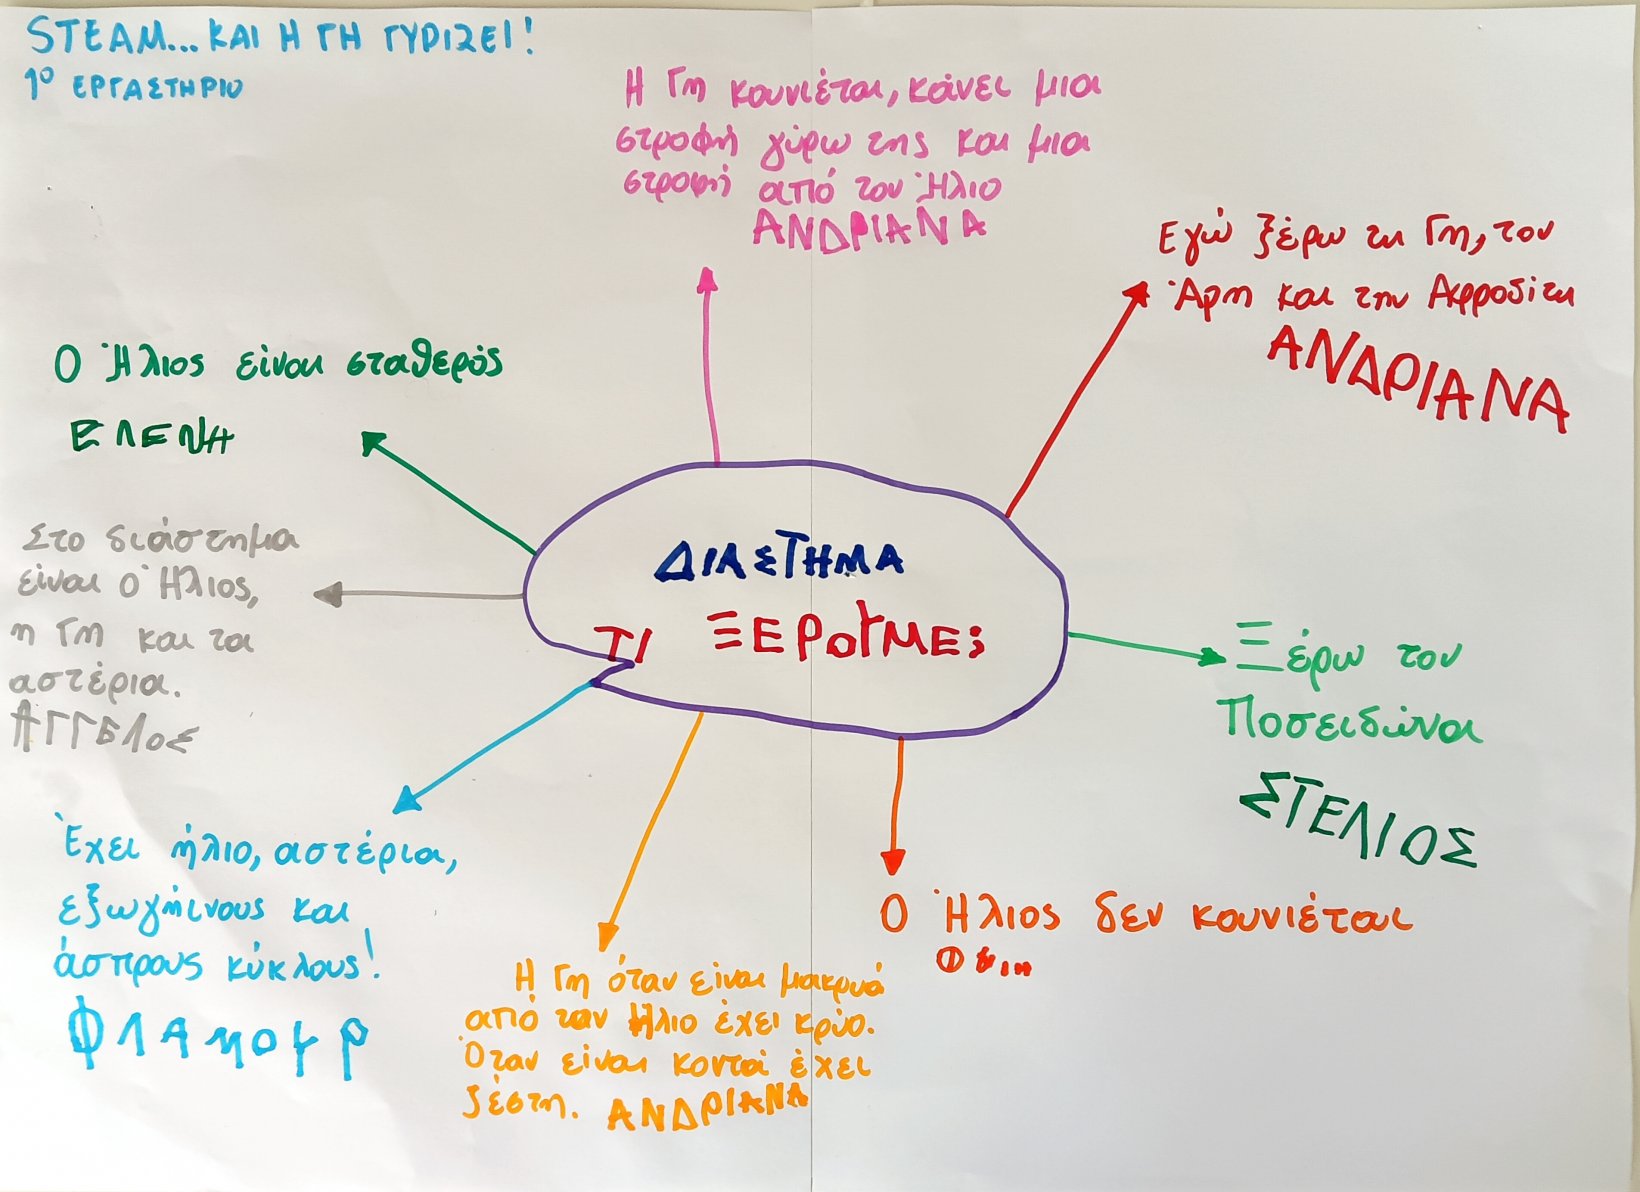 STEAM... ΚΑΙ Η ΓΗ ΓΥΡΙΖΕΙ!
1ο ΕΡΓΑΣΤΗΡΙΟ
Η Γη κουνιέται, κάνει μια
στροφή γύρω της και μια
στροφή από τον Ήλιο
ΑΝΔΡΙΑΝΑ
Εγώ ξέρω τη Γη, τον
Άρη και την Αφροδίτη
ΑΝΔΡΙΑΝΑ
Ο Ήλιος είναι σταθερός
ΕΛΕΝΗ
Στο διάστημα
είναι ο Ήλιος,
η Γη και τα
αστέρια.
ΑΓΓΕΛΟΣ
ΔΙΑΣΤΗΜΑ
ΤΙ ΞΕΡΟΥΜΕ;
Ξέρω τον
Ποσειδώνα
ΣΤΕΛΙΟΣ
Έχει ήλιο, αστέρια,
εξωγήινους και
άσπρους κύκλους!
ΦΛΑΜΟΥΡ
Ο Ήλιος δεν κουνιέται
Η Γη όταν είναι μακρυά
από τον Ήλιο έχει κρύο.
Όταν είναι κοντά έχει
ζέστη. ΑΝΔΡΙΑΝΑ